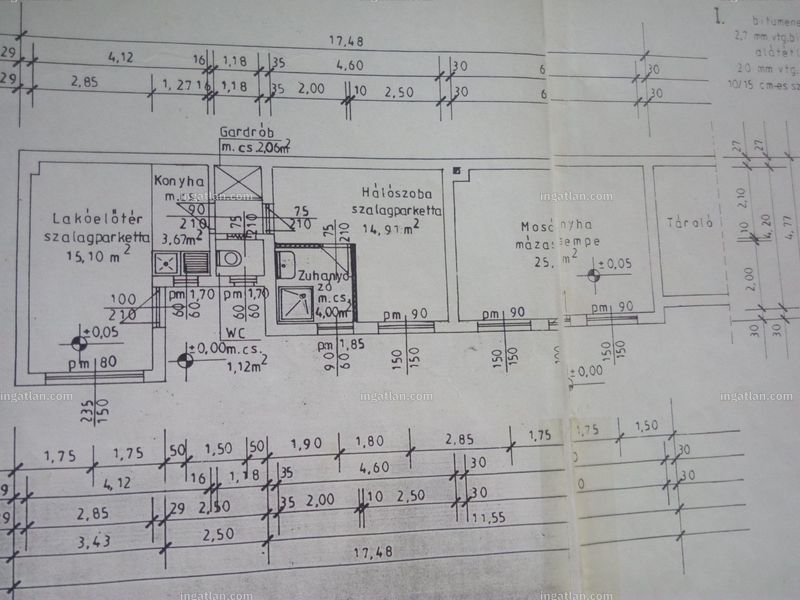 ingatlan.com
ingatlan.com
ingatlan.com
I.
bitumene
2,7 mm vtg.bi
alátét
20 mm vtg.
10/15 cm-es sz
17,48
29
4,12
16
1,18
35
4,60
30
6
30
29
2,85
1,27
16
1,18
35
2,00
10
2,50
30
6
30
Gardrób
m.cs. 2,06m²
Konyha
m.cs.
3,67m²
90
210
75
210
75
210
Lakóelőtér
szalagparketta
15,10 m²
Hálószoba
szalagparketta
14,91 m²
Mosó
nyha
máza
empe
25,
m²
±0,05
Tároló
75
210
Zuhanyzó
20
m.cs.
4,00m²
100
210
pm 1,70
60
60
pm 1,70
60
60
pm 90
150
150
pm 90
150
150
pm 90
150
150
±0,05
pm 80
235
150
WC
±0,00 m.cs.
1,12m²
pm 1,85
90
60
±0,00
27
27
2,10
10
4,20
4,77
2,00
30
30
ingatlan.com
ingatlan.com
ingatlan.com
1,75
1,75
50
1,50
50
1,90
1,80
2,85
1,75
1,75
1,50
9
4,12
16
1,18
35
4,60
30
30
9
2,85
29
2,50
35
2,00
10
2,50
30
0
30
3,43
2,50
11,55
17,48
ingatlan.com
ingatlan.com
ingatlan.com